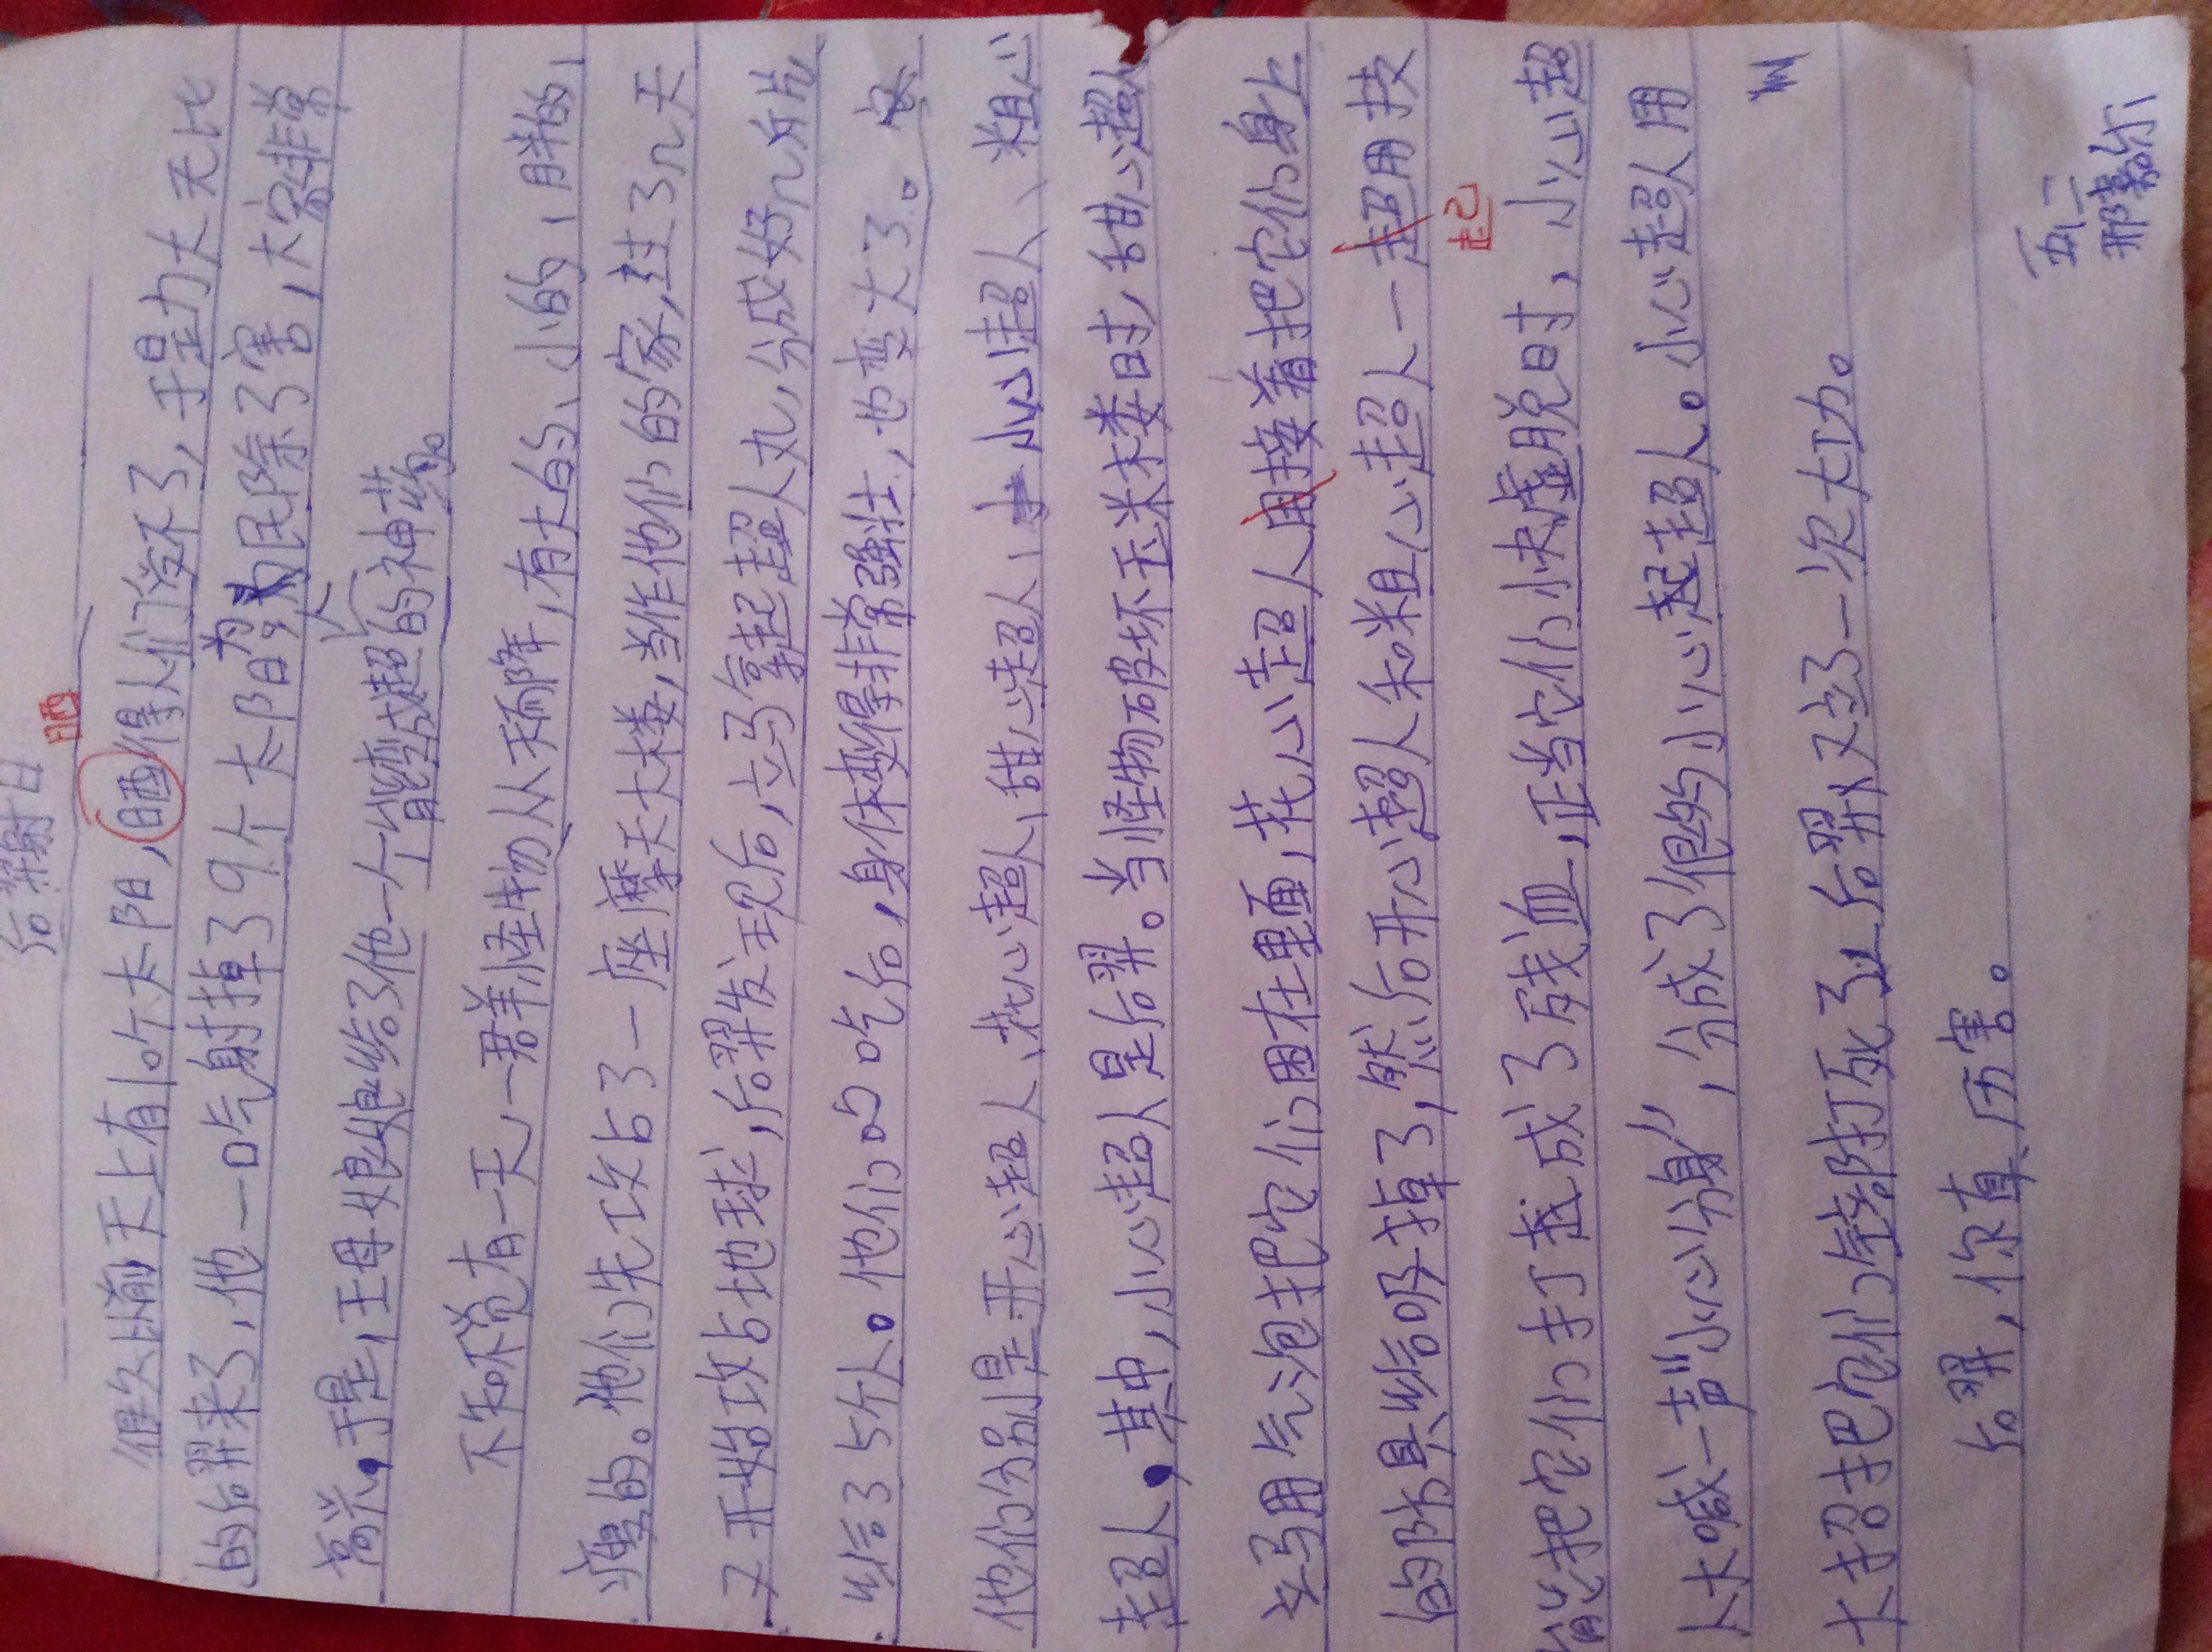 后羿射日
晒
很久以前,天上有10个太阳,晒得人们受不了,于是力大无比
的后羿来了,他一口气射掉了9个太阳,为民除了害,大家非常
高兴。于是,王母娘娘给了他一个能变成超人的神药。
不知不觉有一天,一群怪物从天而降,有大的、小的、胖的、
瘦的。他们先攻占了一座摩天大楼,当作他们的家,过了几天
又开始攻占地球,后羿发现后,立马拿起超人丸,分成好几片
给了5个人。他们吃后,身体变得非常强壮,也变大了。
他们分别是开心超人、花心超人、甜心超人、小心超人、粗心
超人。其中,小心超人是后羿。当怪物破坏玉米楼时,甜心超人
立马用气泡把它们困在里面,花心超人用接着把它们身上
的防具给吸掉了,然后开心超人和粗心超人一超用技
起
能把它们打成了残血,正当它们快虚脱时,小心超
人大喊一声“小心分身”,分成了很多的小心超人。小心超人用
大招把它们全部打死了,后羿又立了一次大功。
后羿,你真历害。
五二